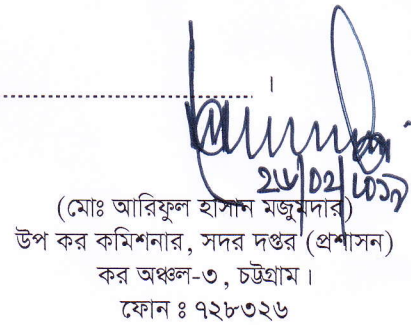 ..............................।
(মোঃ আরিফুল হাসান মজুমদার)
উপ কর কমিশনার, সদর দপ্তর (প্রশাসন)
কর অঞ্চল-৩, চট্টগ্রাম।
ফোন ঃ ৭২৮৩২৬